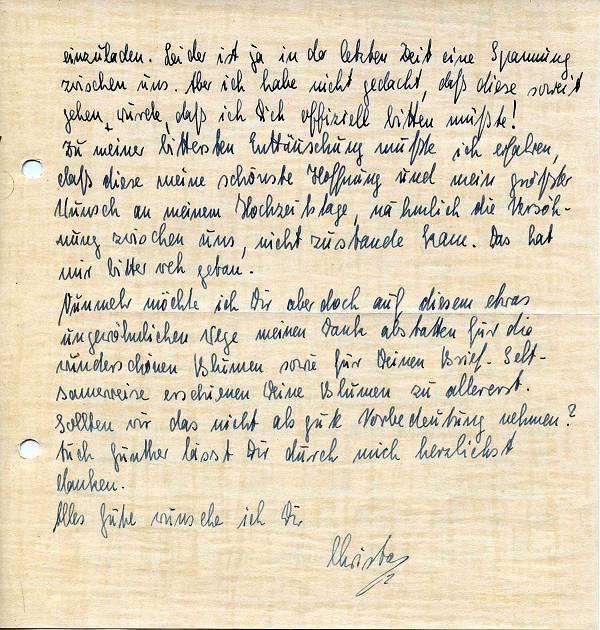 einzuladen. Leider ist ja in der letzten Zeit eine Spannung
zwischen uns. Aber ich habe nicht gedacht, daß diese soweit
gehen würde, daß ich Dich offiziell bitten müßte!
Zu meiner bittersten Enttäuschung mußte ich erfahren,
daß diese meine schönste Hoffnung und mein größter
Wunsch an meinem Hochzeitstage, nähmlich die Versöh-
nung zwischen uns, nicht zustande kam. Das hat
mir bitter weh getan.
Nunmehr möchte ich Dir aber doch auf diesem etwas
ungewöhnlichen Wege meinen Dank abstatten für die
wunderschönen Blumen sowie für Deinen Brief. Selt-
samerweise erschienen Deine Blumen zu allererst.
Sollten wir das nicht als gute Vorbedeutung nehmen?
Auch Günther lässt Dir durch mich herzlichst
danken.
Alles Gute wünsche ich Dir
Christa